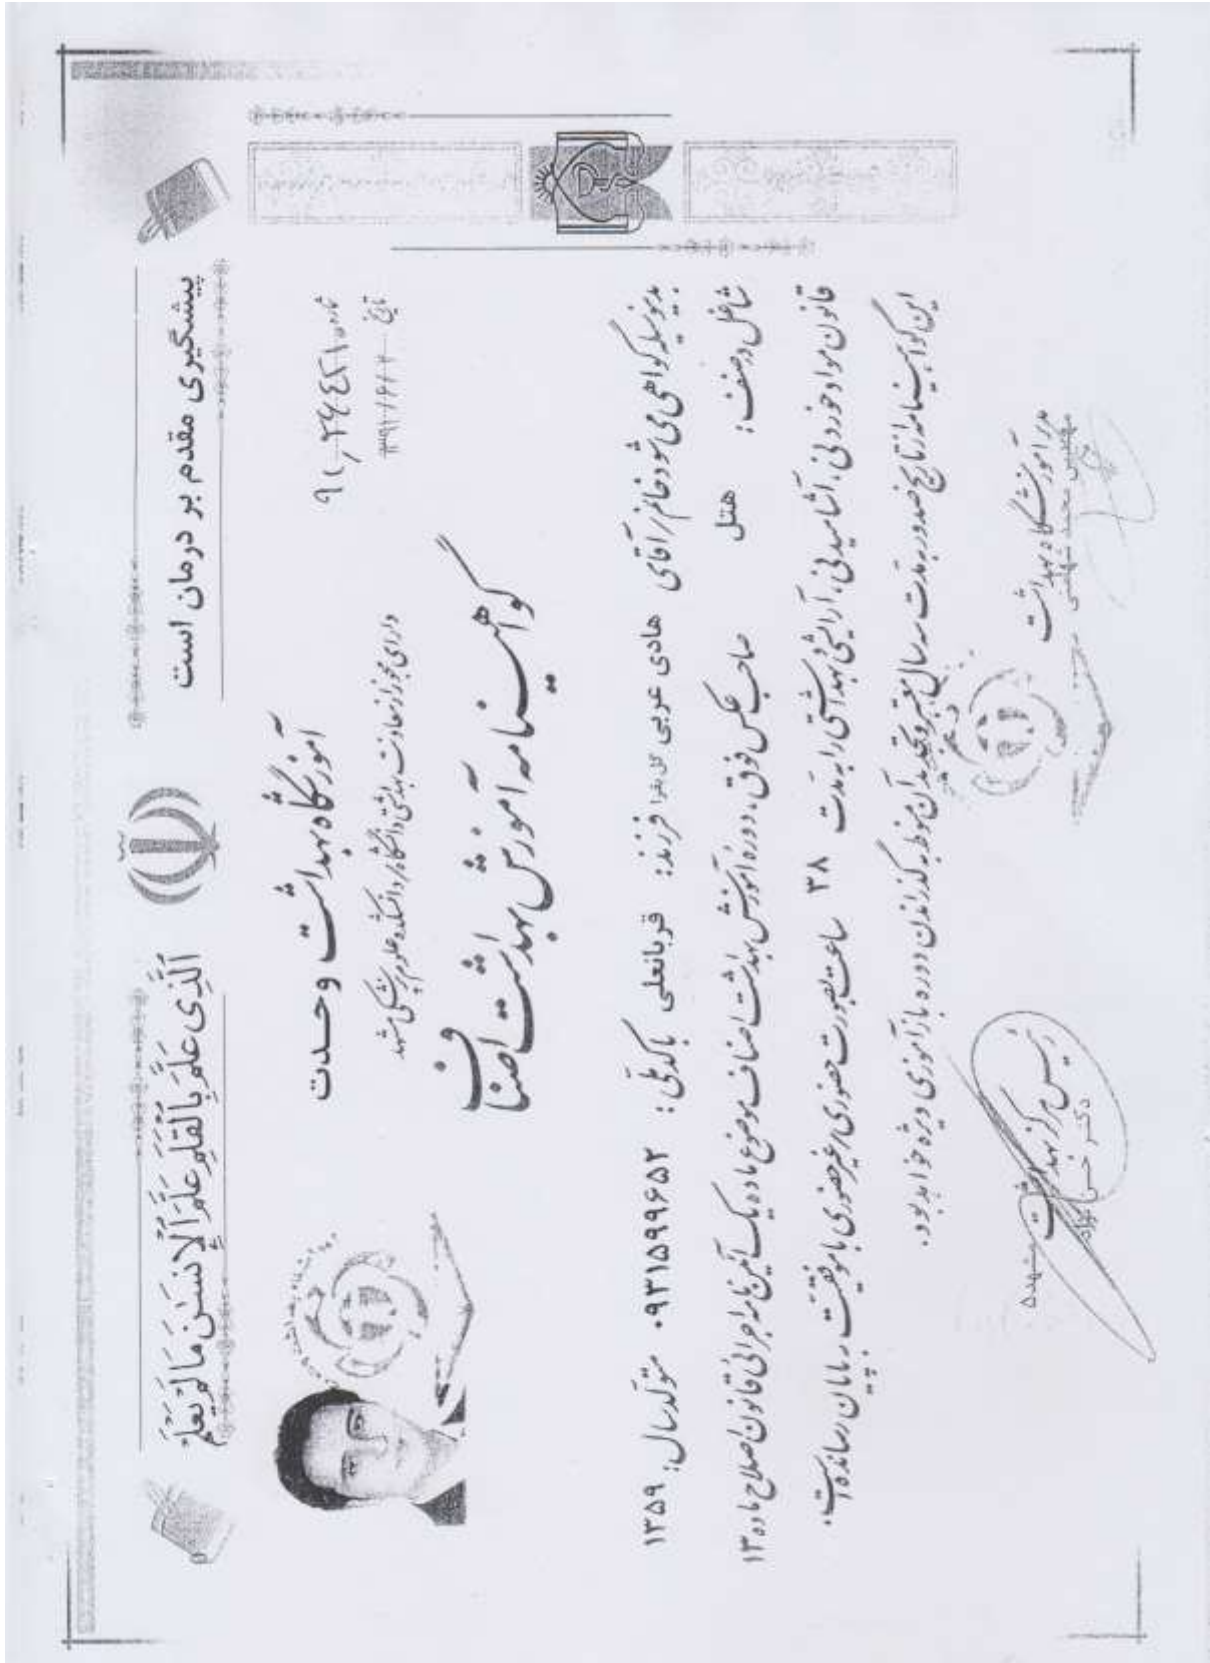 الَّذِی عَلَّمَ بِالْقَلَمِ عَلَّمَ الْإِنسَٰنَ مَا لَمْ یَعْلَمْ
پیشگیری مقدم بر درمان است
آموزشگاه بهداشت وحدت
شماره ۹۱/۲۶۴۲۱
دارای مجوز از معاونت بهداشتی دانشگاه/دانشکده علوم پزشکی مشهد
تاریخ
گواهینامه آموزش بهداشت اصناف
بدینوسیله گواهی می شود خانم/آقای هادی عربی فرزند: قربانعلی باکدملی: ۰۹۳۱۵۹۹۶۵۲ متولد سال: ۱۳۵۹
شاغل در صنف: هتل صاحب عکس فوق، دوره آموزش بهداشت اصناف موضوع ماده یک آئین نامه اجرائی قانون اصلاح ماده ۱۳
قانون مواد خوردنی، آشامیدنی، آرایشی و بهداشتی را به مدت ۳۸ ساعت بصورت حضوری/غیرحضوری با موفقیت به پایان رسانده است.
این گواهینامه از تاریخ صدور به مدت سه سال معتبر و تجدید آن منوط به گذراندن دوره بازآموزی ویژه خواهد بود.
مدیر آموزشگاه بهداشت
مهندس محمد
رئیس مرکز بهداشت
مشهد
دکتر